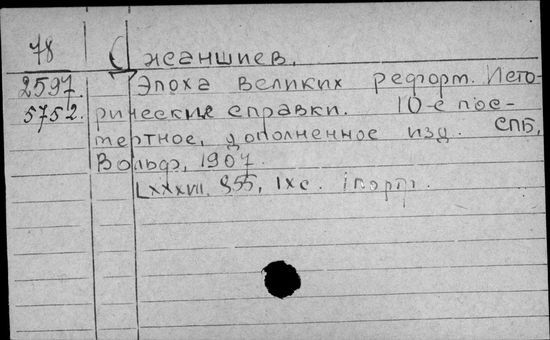 78 Джаншиев.
2597. Эпоха великих реформ. Исто-
5752. рические справки. 10-е пос-
мертное, дополненное изд. СПБ,
Вольф, 1907.
LXXXVIII. 855, IXс. 1 портр.